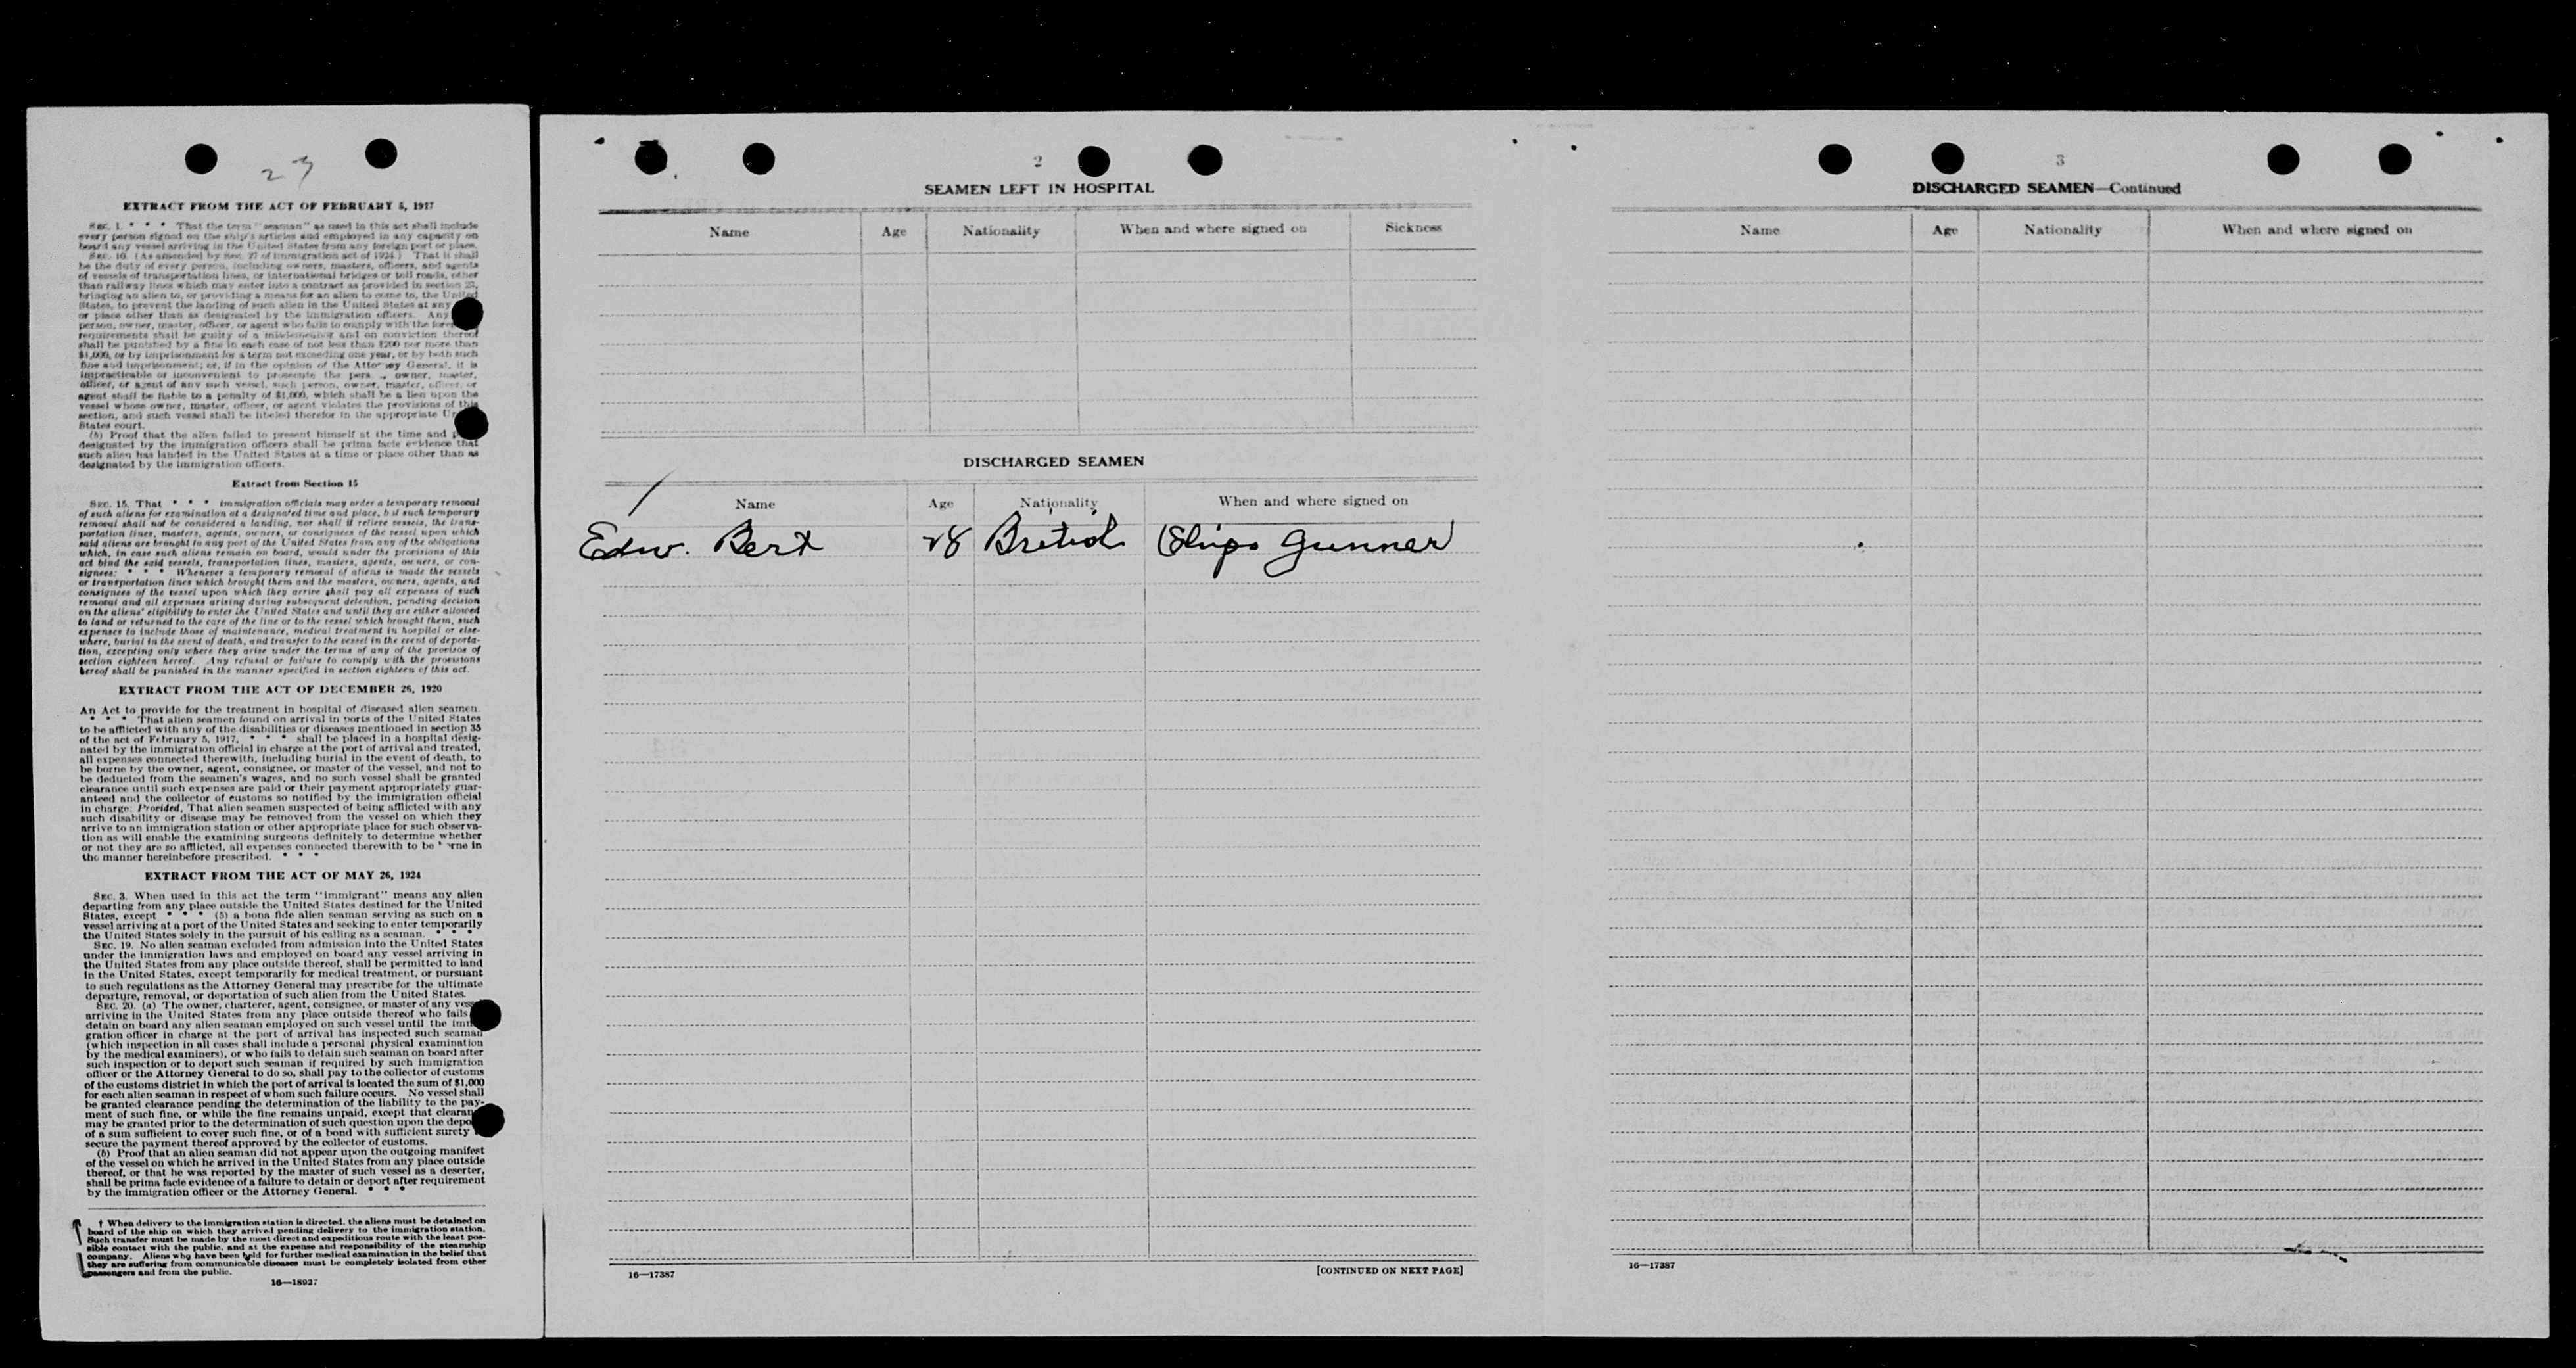 23
EXTRACT FROM THE ACT OF FEBRUARY 5, 1917
SEC. 1. * * * That the term "seaman" as used in this act shall include
every person signed on the ship's articles and employed in any capacity on
board any vessel arriving in the United States from any foreign port or place.
SEC. 10. (As amended by Sec. 27 of immigration act of 1924.) That it shall
be the duty of every person, including owners, masters, officers, and agents
of vessels of transportation lines, or international bridges or toll roads, other
than railway lines which may enter into a contract as provided in section 23,
bringing an alien to, or providing a means for an alien to come to, the United
States, to prevent the landing of such alien in the United States at any
or place other than as designated by the immigration officers. Any
person, owner, master, officer, or agent who fails to comply with the
requirements shall be guilty of a misdemeanor and on conviction thereof
shall be punished by a fine in each case of not less than $200 nor more than
$1,000, or by imprisonment for a term not exceeding one year, or by both such
fine and imprisonment; or, if in the opinion of the Attorney General, it is
impracticable or inconvenient to prosecute the pers , owner, master,
officer, or agent of any such vessel, such person, owner, master, officer, or
agent shall be liable to a penalty of $1,000, which shall be a lien upon the
vessel whose owner, master, officer, or agent violates the provisions of this
section, and such vessel shall be libeled therefor in the appropriate
States court.
(b) Proof that the alien failed to present himself at the time and
designated by the immigration officers shall be prima facie evidence that
such alien has landed in the United States at a time or place other than as
designated by the immigration officers.
Extract from Section 15
SEC. 15. That * * * immigration officials may order a temporary removal
of such aliens for examination at a designated time and place, but such temporary
removal shall not be considered a landing, nor shall it relieve vessels, the trans-
portation lines, masters, agents, owners, or consignees of the vessel upon which
said aliens are brought to any port of the United States from any of the obligations
which, in case such aliens remain on board, would under the provisions of this
act bind the said vessels, transportation lines, masters, agents, owners, or con-
signees: * * * Whenever a temporary removal of aliens is made the vessels
or transportation lines which brought them and the masters, owners, agents, and
consignees of the vessel upon which they arrive shall pay all expenses of such
removal and all expenses arising during subsequent detention, pending decision
on the aliens' eligibility to enter the United States and until they are either allowed
to land or returned to the care of the line or to the vessel which brought them, such
expenses to include those of maintenance, medical treatment in hospital or else-
where, burial in the event of death, and transfer to the vessel in the event of deporta-
tion, excepting only where they arise under the terms of any of the provisos of
section eighteen hereof. Any refusal or failure to comply with the provisions
hereof shall be punished in the manner specified in section eighteen of this act.
EXTRACT FROM THE ACT OF DECEMBER 26, 1920
An Act to provide for the treatment in hospital of diseased alien seamen.
* * * That alien seamen found on arrival in ports of the United States
to be afflicted with any of the disabilities or diseases mentioned in section 35
of the act of February 5, 1917, * * * shall be placed in a hospital desig-
nated by the immigration official in charge at the port of arrival and treated,
all expenses connected therewith, including burial in the event of death, to
be borne by the owner, agent, consignee, or master of the vessel, and not to
be deducted from the seamen's wages, and no such vessel shall be granted
clearance until such expenses are paid or their payment appropriately guar-
anteed and the collector of customs so notified by the immigration official
in charge: Provided, That alien seamen suspected of being afflicted with any
such disability or disease may be removed from the vessel on which they
arrive to an immigration station or other appropriate place for such observa-
tion as will enable the examining surgeons definitely to determine whether
or not they are so afflicted, all expenses connected therewith to be rne in
the manner hereinbefore prescribed. * * *
EXTRACT FROM THE ACT OF MAY 26, 1924
SEC. 3. When used in this act the term "immigrant" means any alien
departing from any place outside the United States destined for the United
States, except * * * (5) a bona fide alien seaman serving as such on a
vessel arriving at a port of the United States and seeking to enter temporarily
the United States solely in the pursuit of his calling as a seaman. * * *
SEC. 19. No alien seaman excluded from admission into the United States
under the immigration laws and employed on board any vessel arriving in
the United States from any place outside thereof, shall be permitted to land
in the United States, except temporarily for medical treatment, or pursuant
to such regulations as the Attorney General may prescribe for the ultimate
departure, removal, or deportation of such alien from the United States.
SEC. 20. (a) The owner, charterer, agent, consignee, or master of any
arriving in the United States from any place outside thereof who fails
detain on board any alien seaman employed on such vessel until the immi-
gration officer in charge at the port of arrival has inspected such seaman
(which inspection in all cases shall include a personal physical examination
by the medical examiners), or who fails to detain such seaman on board after
such inspection or to deport such seaman if required by such immigration
officer or the Attorney General to do so, shall pay to the collector of customs
of the customs district in which the port of arrival is located the sum of $1,000
for each alien seaman in respect of whom such failure occurs. No vessel shall
be granted clearance pending the determination of the liability to the pay-
ment of such fine, or while the fine remains unpaid, except that clearance
may be granted prior to the determination of such question upon the
of a sum sufficient to cover such fine, or of a bond with sufficient surety
secure the payment thereof approved by the collector of customs.
(b) Proof that an alien seaman did not appear upon the outgoing manifest
of the vessel on which he arrived in the United States from any place outside
thereof, or that he was reported by the master of such vessel as a deserter,
shall be prima facie evidence of a failure to detain or deport after requirement
by the immigration officer or the Attorney General. * * *
† When delivery to the immigration station is directed, the aliens must be detained on
board of the ship on which they arrived pending delivery to the immigration station.
Such transfer must be made by the most direct and expeditious route with the least pos-
sible contact with the public, and at the expense and responsibility of the steamship
company. Aliens who have been held for further medical examination in the belief that
they are suffering from communicable diseases must be completely isolated from other
passengers and from the public.
16—18927
2
SEAMEN LEFT IN HOSPITAL
Name Age Nationality When and where signed on Sickness
DISCHARGED SEAMEN
Name Age Nationality When and where signed on
Edw. Bert 28 British (Ships Gunner)
16—17387 [CONTINUED ON NEXT PAGE]
3
DISCHARGED SEAMEN—Continued
Name Age Nationality When and where signed on
16—17387